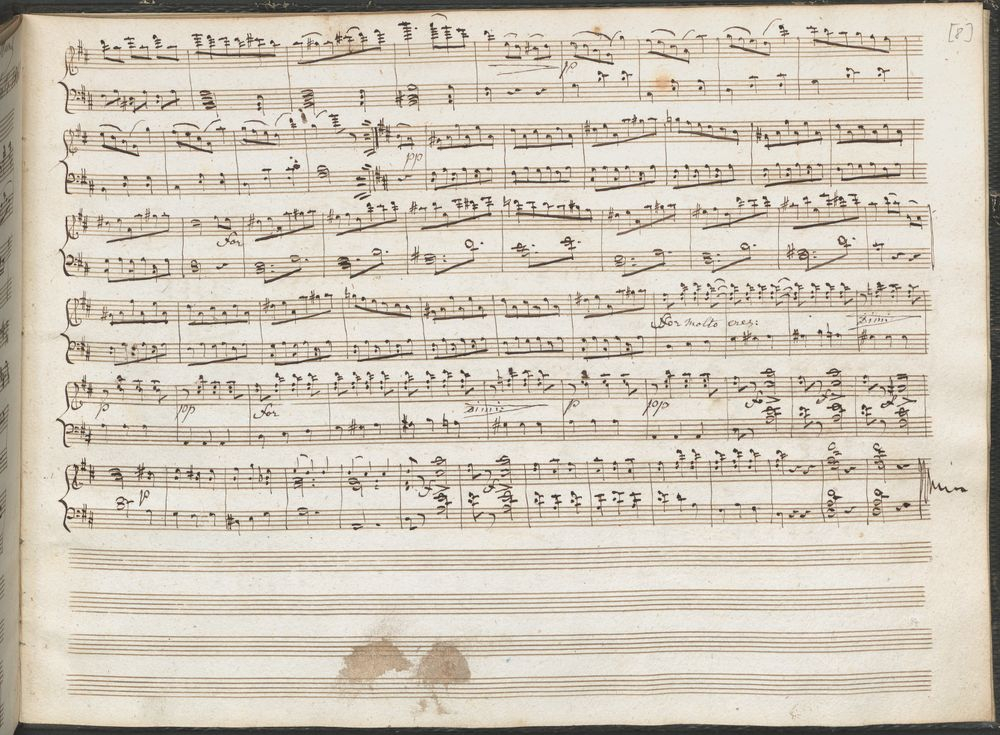 [8]
pp
pp
For
For molto cres:
Dimi:
p pp For Dimi: p pp F F F
p F F F F